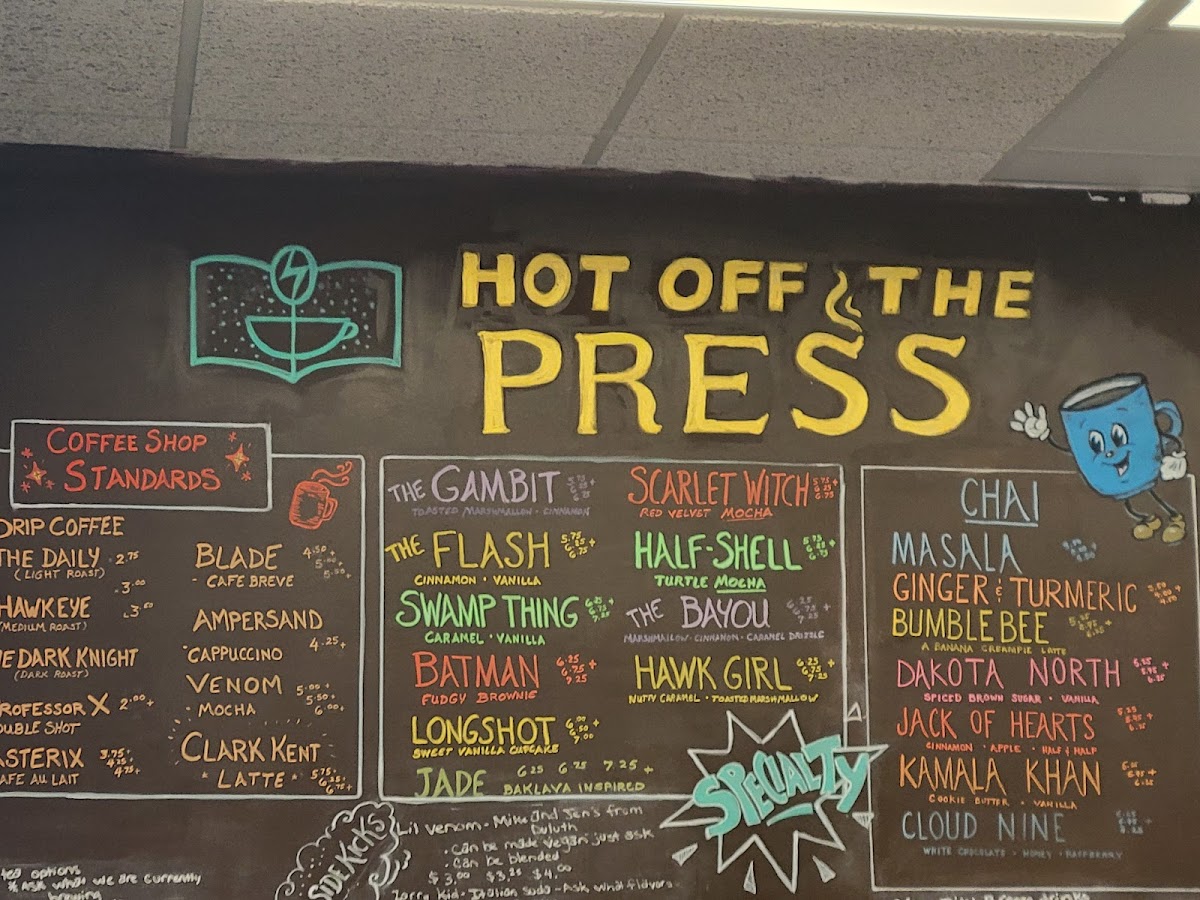 HOT OFF THE
PRESS
COFFEE SHOP
STANDARDS
DRIP COFFEE
THE DAILY 2.75
(LIGHT ROAST)
3.00
HAWKEYE 3.50
(MEDIUM ROAST)
DARK KNIGHT
(DARK ROAST)
PROFESSOR X 2.00+
DOUBLE SHOT
ASTERIX 3.75+
4.75+
AU LAIT
BLADE 4.50+
- CAFE BREVE 5.50+
AMPERSAND
4.25+
·CAPPUCCINO
VENOM 5.00+
· MOCHA 5.50+
6.00+
CLARK KENT
· LATTE · 5.75+
6.25+
6.75+
THE GAMBIT 5.75 +
6.25
6.75
TOASTED MARSHMALLOW · CINNAMON
THE FLASH 5.75 +
6.25
6.75
CINNAMON · VANILLA
SWAMP THING 6.25 +
6.75
7.25
CARAMEL · VANILLA
BATMAN 6.25 +
6.75
7.25
FUDGY BROWNIE
LONGSHOT 6.00 +
6.50
7.00
SWEET VANILLA CUPCAKE
JADE 6.25 6.75 7.25 +
BAKLAVA INSPIRED
SCARLET WITCH 5.75 +
6.25
6.75
RED VELVET MOCHA
HALF-SHELL 5.75 +
6.25
6.75
TURTLE MOCHA
THE BAYOU 6.25 +
6.75
7.25
MARSHMALLOW · CINNAMON · CARAMEL DRIZZLE
HAWK GIRL 6.25 +
6.75
7.25
NUTTY CARAMEL · TOASTED MARSHMALLOW
SPECIALTY
CHAI
MASALA
GINGER & TURMERIC
BUMBLEBEE
A BANANA CREAMPIE LATTE
DAKOTA NORTH
SPICED BROWN SUGAR · VANILLA
JACK OF HEARTS
CINNAMON · APPLE · HALF & HALF
KAMALA KHAN
COOKIE BUTTER · VANILLA
CLOUD NINE
WHITE CHOCOLATE · HONEY · RASPBERRY
SIDEKICKS
Lil Venom - Mike and Jen's from
Duluth
· can be made vegan just ask
· can be blended
$3.00 $3.25 $4.00
Kid - Italian Soda - Ask what flavors
options
* ASK what we are currently
brewing